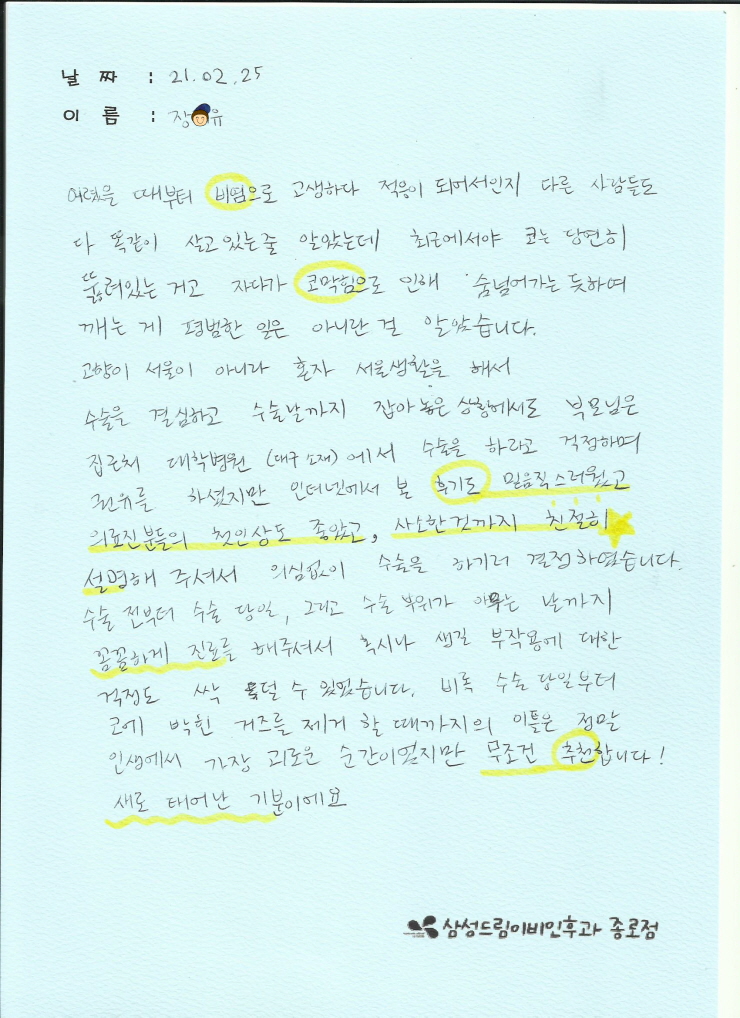 날 짜 : 21.02.25
이 름 : 장 유
어렸을 때부터 비염으로 고생하다 적응이 되어서인지 다른 사람들도
다 똑같이 살고있는줄 알았는데 최근에서야 코는 당연히
뚫려있는 거고 자다가 코막힘으로 인해 숨넘어가는 듯하여
깨는 게 평범한 일은 아니란 걸 알았습니다.
고향이 서울이 아니라 혼자 서울생활을 해서
수술을 결심하고 수술날까지 잡아 놓은 상황에서도 부모님은
집근처 대학병원 (대구 소재)에서 수술을 하라고 걱정하며
권유를 하셨지만 인터넷에서 본 후기도 믿음직스러웠고
의료진분들의 첫인상도 좋았고, 사소한것까지 친절히
설명해 주셔서 의심없이 수술을 하기러 결정하였습니다.
수술 전부터 수술 당일, 그리고 수술 부위가 아무는 날까지
꼼꼼하게 진료를 해주셔서 혹시나 생길 부작용에 대한
걱정도 싹 덜 수 있었습니다. 비록 수술 당일부터
코에 박힌 거즈를 제거 할 때까지의 이틀은 정말
인생에서 가장 괴로운 순간이었지만 무조건 추천합니다!
새로 태어난 기분이에요
삼성드림이비인후과 종로점